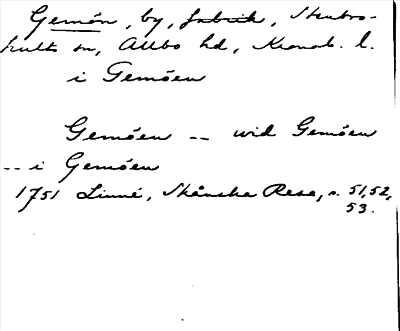 Gemön, by, fabrik, Stenbro-
hults sn, Allbo hd, Kronob. l.
i Gemöen
Gemöen -- wid Gemöen
-- i Gemöen
1751 Linné, Skånska Resa, s. 51, 52,
53.